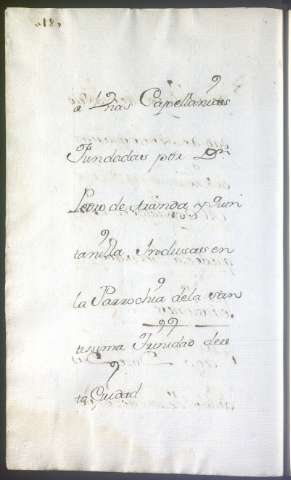 a Dhas Capellanias
Fundadas por Dn
Pedro de Aranda, y Quin
tanilla Inclusas en
la Parrochia dela San
tisyma Trinidad de es
ta Ciudad